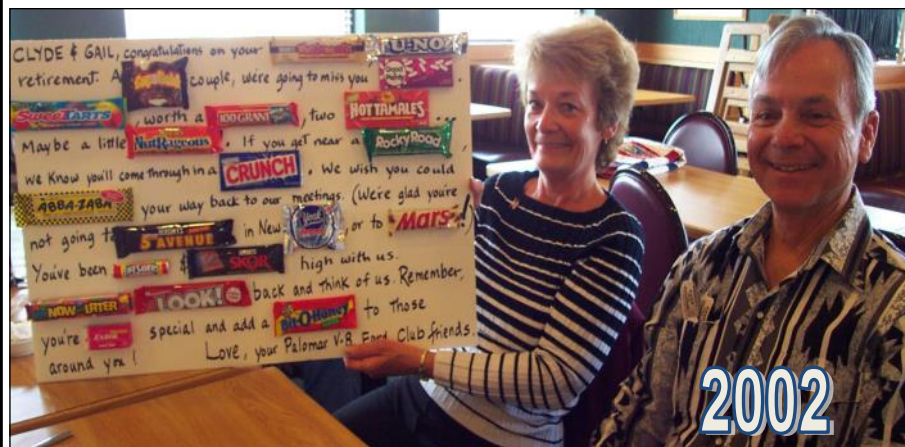 CLYDE & GAIL, congratulations on your U-NO
retirement. A couple, we're going to miss you .
SweeTARTS , worth a 100 GRAND , two HOT TAMALES ...
Maybe a little NutRageous . If you get near a Rocky Road ,
we know you'll come through in a CRUNCH . We wish you could
ABBA-ZABA your way back to our meetings. (We're glad you're
not going to 5th AVENUE in New York or to Mars !
You've been & SKOR high with us.
NOW and LATER LOOK! back and think of us. Remember,
you're Extra special and add a Bit-O-Honey to those
around you! Love, your Palomar V-8 Ford Club friends.
2002